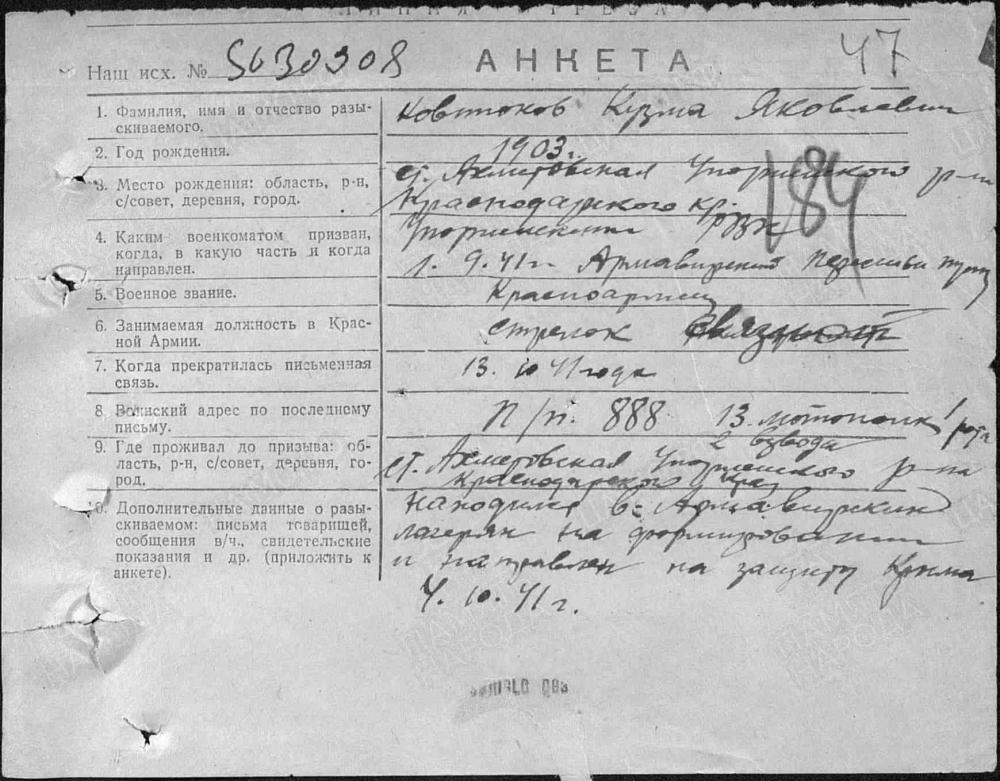 Наш исх. № 5030308 АНКЕТА 47
1. Фамилия, имя и отчество разы-
скиваемого.
Ковтюков Кузма Яковлевич
2. Год рождения.
1903 г.
3. Место рождения: область, р-н,
с/совет, деревня, город.
ст. Ахметовская Упорненского р-на
Краснодарского кр.
184
4. Каким военкоматом призван,
когда, в какую часть и когда
направлен.
Упорненским РВК
1. 9. 41 г. Армавирский Пересыльн пункт
5. Военное звание.
Красноармеец
6. Занимаемая должность в Крас-
ной Армии.
стрелок
7. Когда прекратилась письменная
связь.
13. 10 41 года
8. Воинский адрес по последнему
письму.
п/п. 888 13 мотополк 1 рота
2 взвода
9. Где проживал до призыва: об-
ласть, р-н, с/совет, деревня, го-
род.
ст. Ахметовская Упорненского р-на
Краснодарского края
10. Дополнительные данные о разы-
скиваемом: письма товарищей,
сообщения в/ч., свидетельские
показания и др. (приложить к
анкете).
находился в Армавирских
лагерях на формировании
и направлен на защиту Крыма
4. 10. 41 г.